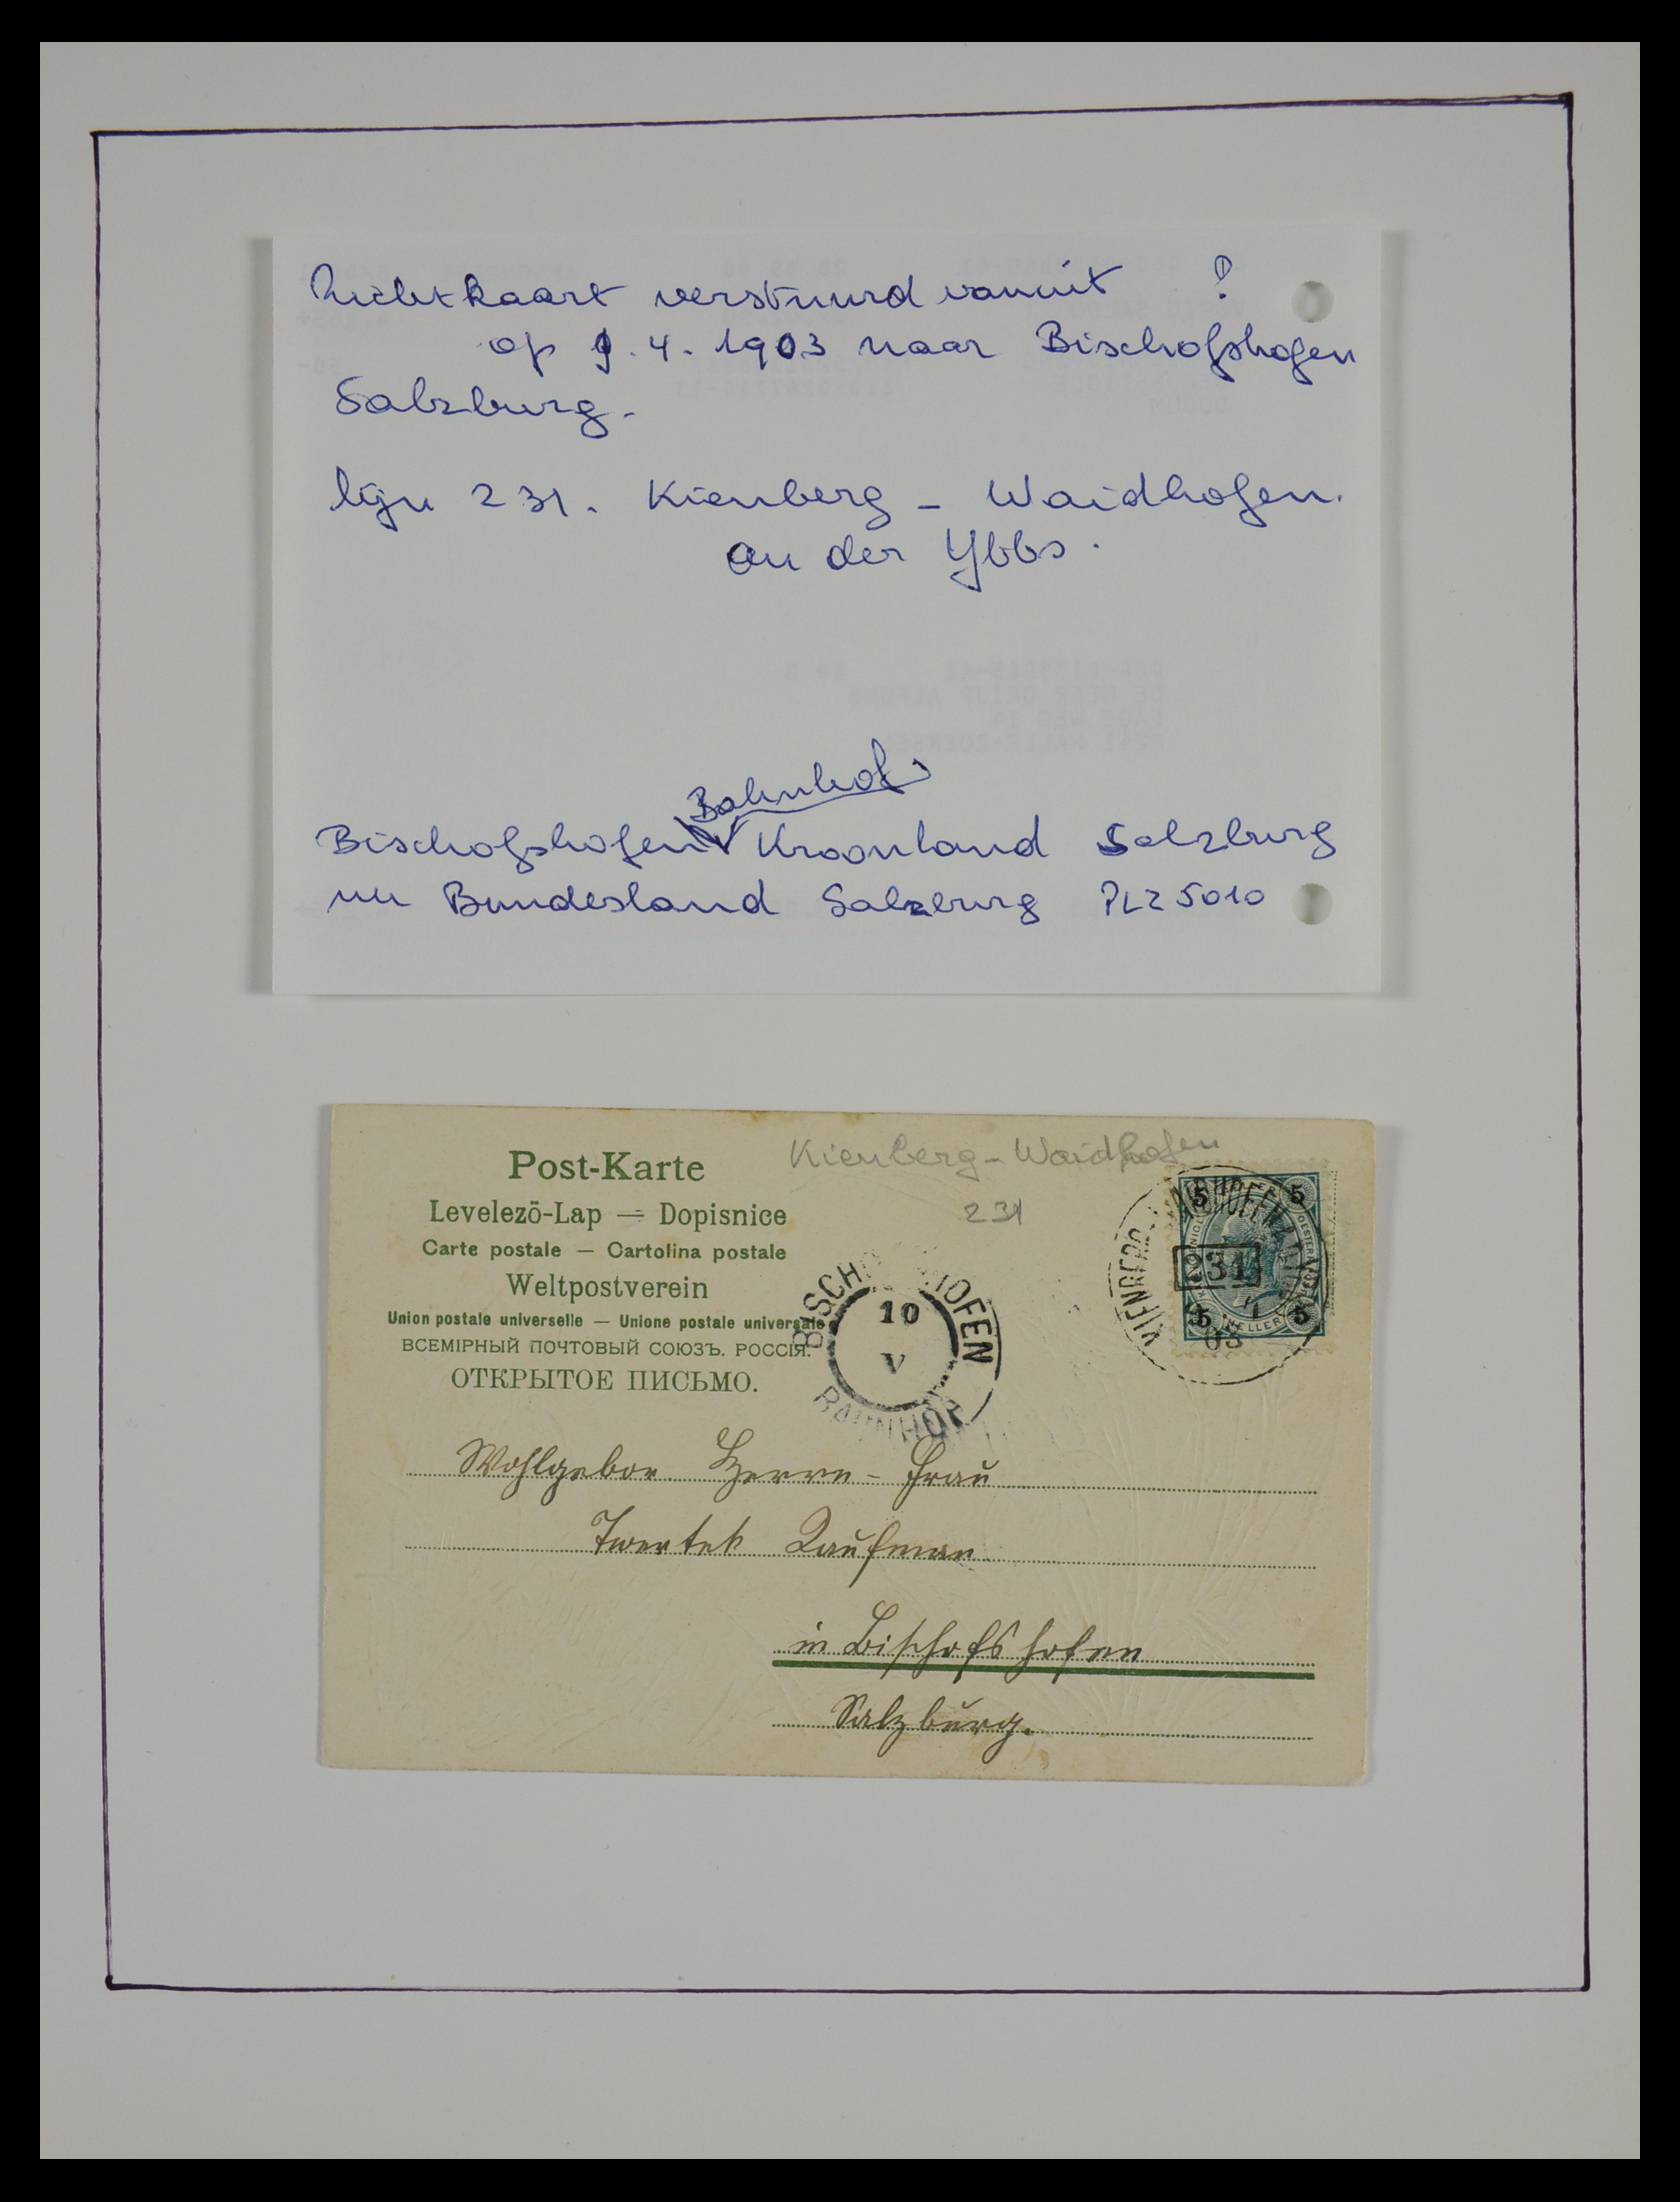 Zichtkaart verstuurd vanuit ?
op 9.4.1903 naar Bischofshofen
Salzburg.
lijn 231. Kienberg - Waidhofen.
an der Ybbs.
Bahnhof
Bischofshofen Kroonland Salzburg
nu Bundesland Salzburg PLZ 5010
Kienberg - Waidhofen
231
Post-Karte
Levelező-Lap — Dopisnice
Carte postale — Cartolina postale
Weltpostverein
Union postale universelle — Unione postale universale
ВСЕМІРНЫЙ ПОЧТОВЫЙ СОЮЗЪ. РОССІЯ.
ОТКРЫТОЕ ПИСЬМО.
BISCHOFSHOFEN
10
V
BAHNHOF
KIENBERG-WAIDHOFEN
231
03
5 5
5 5
HELLER
Wohlgebor. Herrn - Frau
Kaufman
in Bischofshofen
Salzburg.